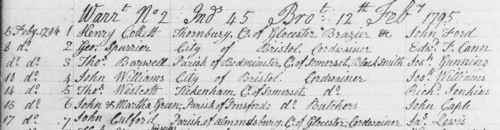 Warrt. No 2 Ind 45 Brot. 12th Feby 1795
5 Feby. 1794 1 Henry Collett Thornbury, Co. of Glocester Brazier &c John Ford
8 do. 2 Geo: Spurrier City of Bristol Cordwainer Edwd. F. Cann
do do. 3 Thos. Barwell Parish of Bedminster, Co. of Somerset, Black Smith Jos. Gunning
10 do. 4 John Williams City of Bristol Cordwainer Jos. Williams
14 do 5 Thos. Westcott Tickenham, Co. of Somerset do. Richd. Jenkins
15 do 6 John & Martha Green, Parish of Butchers John Caple
17 do. 7 John Parish of almondsbury, Co. of Glocester, Cordwainer Jas. Lewis